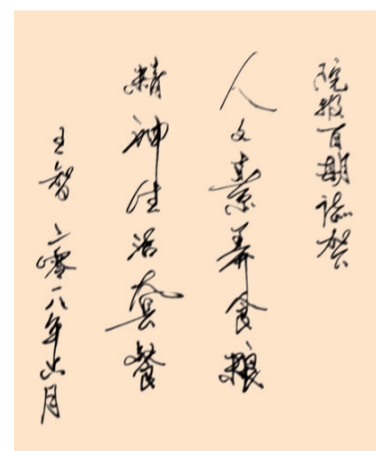 院报百期志贺
人文素养食粮
精神生活套餐
王智 二零一八年六月